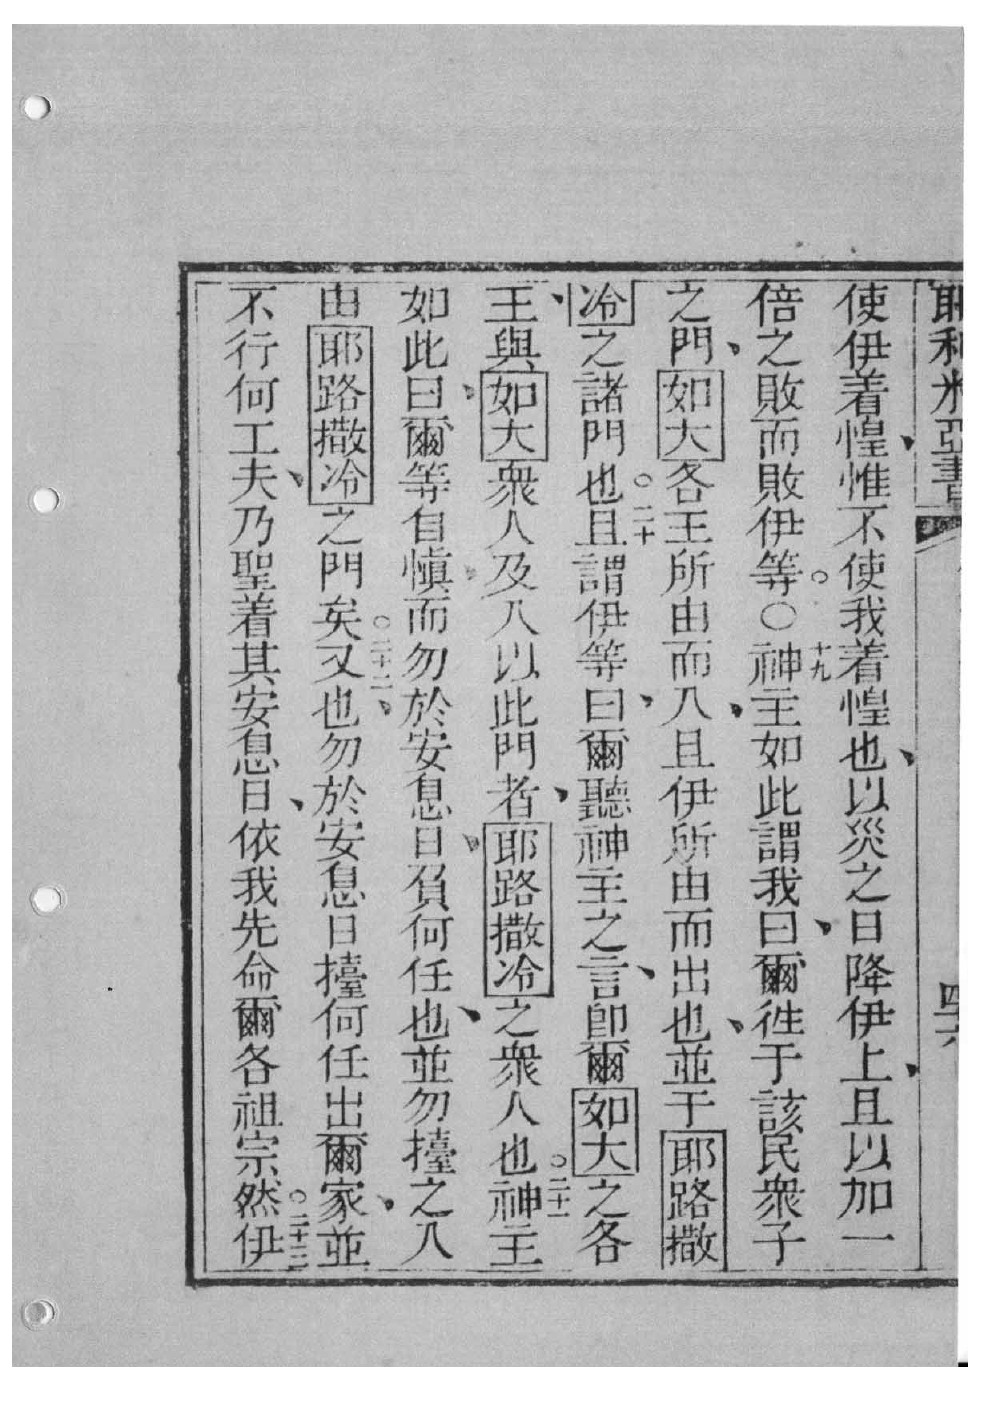 耶利米亞書
使伊着惶、惟不使我着惶也、以災之日降伊上、且以加一
倍之敗而敗伊等。○十九神主如此謂我曰、爾徃于該民衆子
之門、如大各王所由而入、且伊所由而出也、並于耶路撒
冷之諸門也。二十且謂伊等曰、爾聽神主之言、卽爾如大之各
王、與如大衆人、及入以此門者、耶路撒冷之衆人也。二十一神主
如此曰、爾等自愼、而勿於安息日、負何任也、並勿擡之入
由耶路撒冷之門矣。二十二又也、勿於安息日擡何任出爾家、並
不行何工夫、乃聖着其安息日、依我先命爾各祖宗。二十三然伊